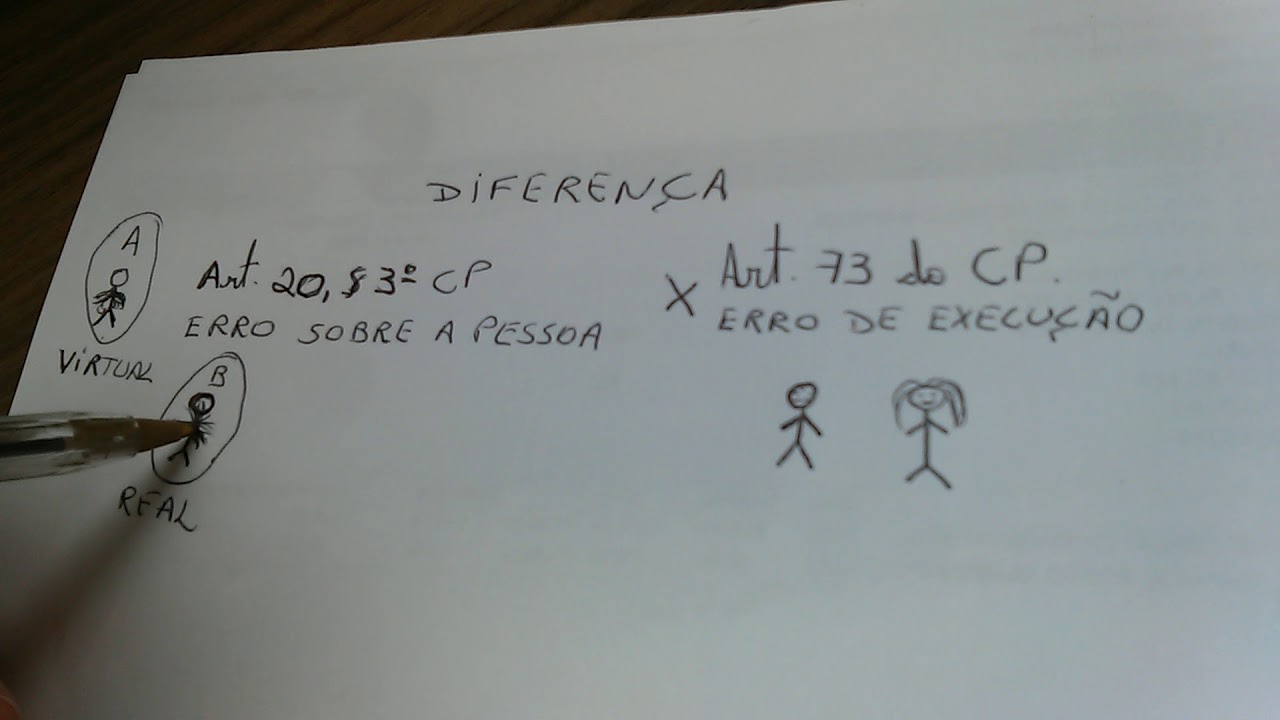 DIFERENÇA
A
Art. 20, § 3º CP
ERRO SOBRE A PESSOA
VIRTUAL
B
REAL
X
Art. 73 do CP.
ERRO DE EXECUÇÃO